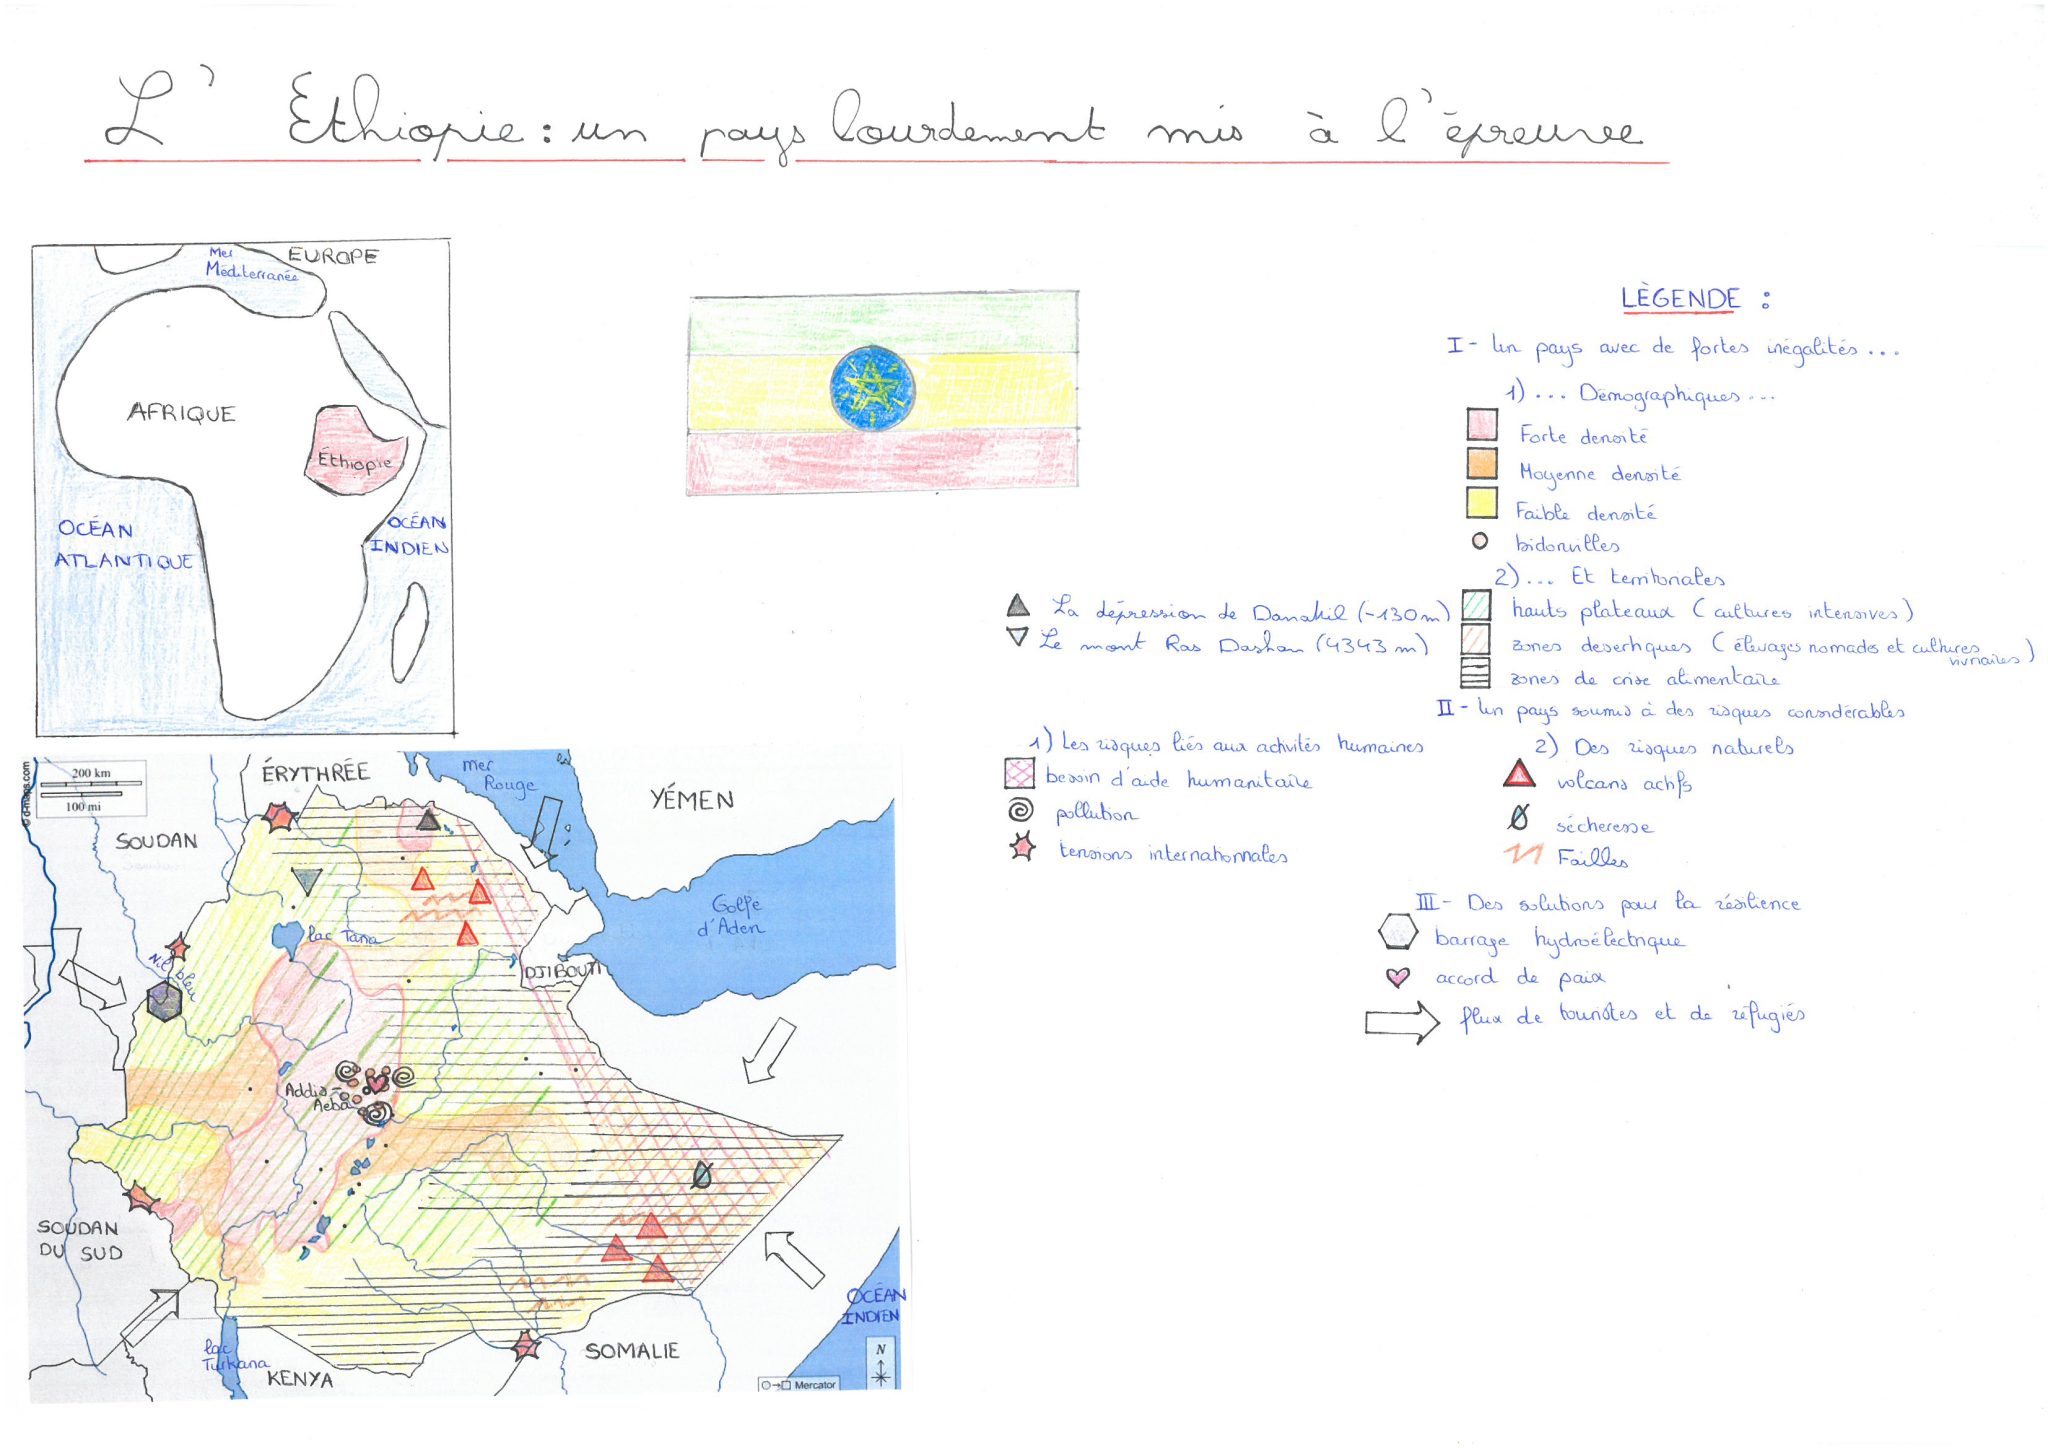 L'Éthiopie : un pays lourdement mis à l'épreuve
Mer
Méditerranée
EUROPE
AFRIQUE
Éthiopie
OCÉAN
ATLANTIQUE
OCÉAN
INDIEN
LÈGENDE :
I - Un pays avec de fortes inégalités...
1) ... Démographiques...
Forte densité
Moyenne densité
Faible densité
bidonvilles
2) ... Et territoriales
hauts plateaux (cultures intensives)
zones desertiques (élevages nomades et cultures
vivriaires)
zones de crise alimentaire
La dépression de Danakil (-130m)
Le mont Ras Dashan (4343 m)
II - Un pays soumis à des risques considérables
1) Les risques liés aux activités humaines
besoin d'aide humanitaire
pollution
tensions internationnales
2) Des risques naturels
volcans actifs
sécheresse
Failles
III - Des solutions pour la résilience
barrage hydroélectrique
accord de paix
flux de touristes et de réfugiés
200 km
100 mi
© d-maps.com
ÉRYTHRÉE
mer
Rouge
YÉMEN
SOUDAN
Golfe
d'Aden
lac Tana
Nil bleu
DJIBOUTI
Addis-
Aeba
SOUDAN
DU SUD
OCÉAN
INDIEN
lac
Turkana
KENYA
SOMALIE
N
Mercator